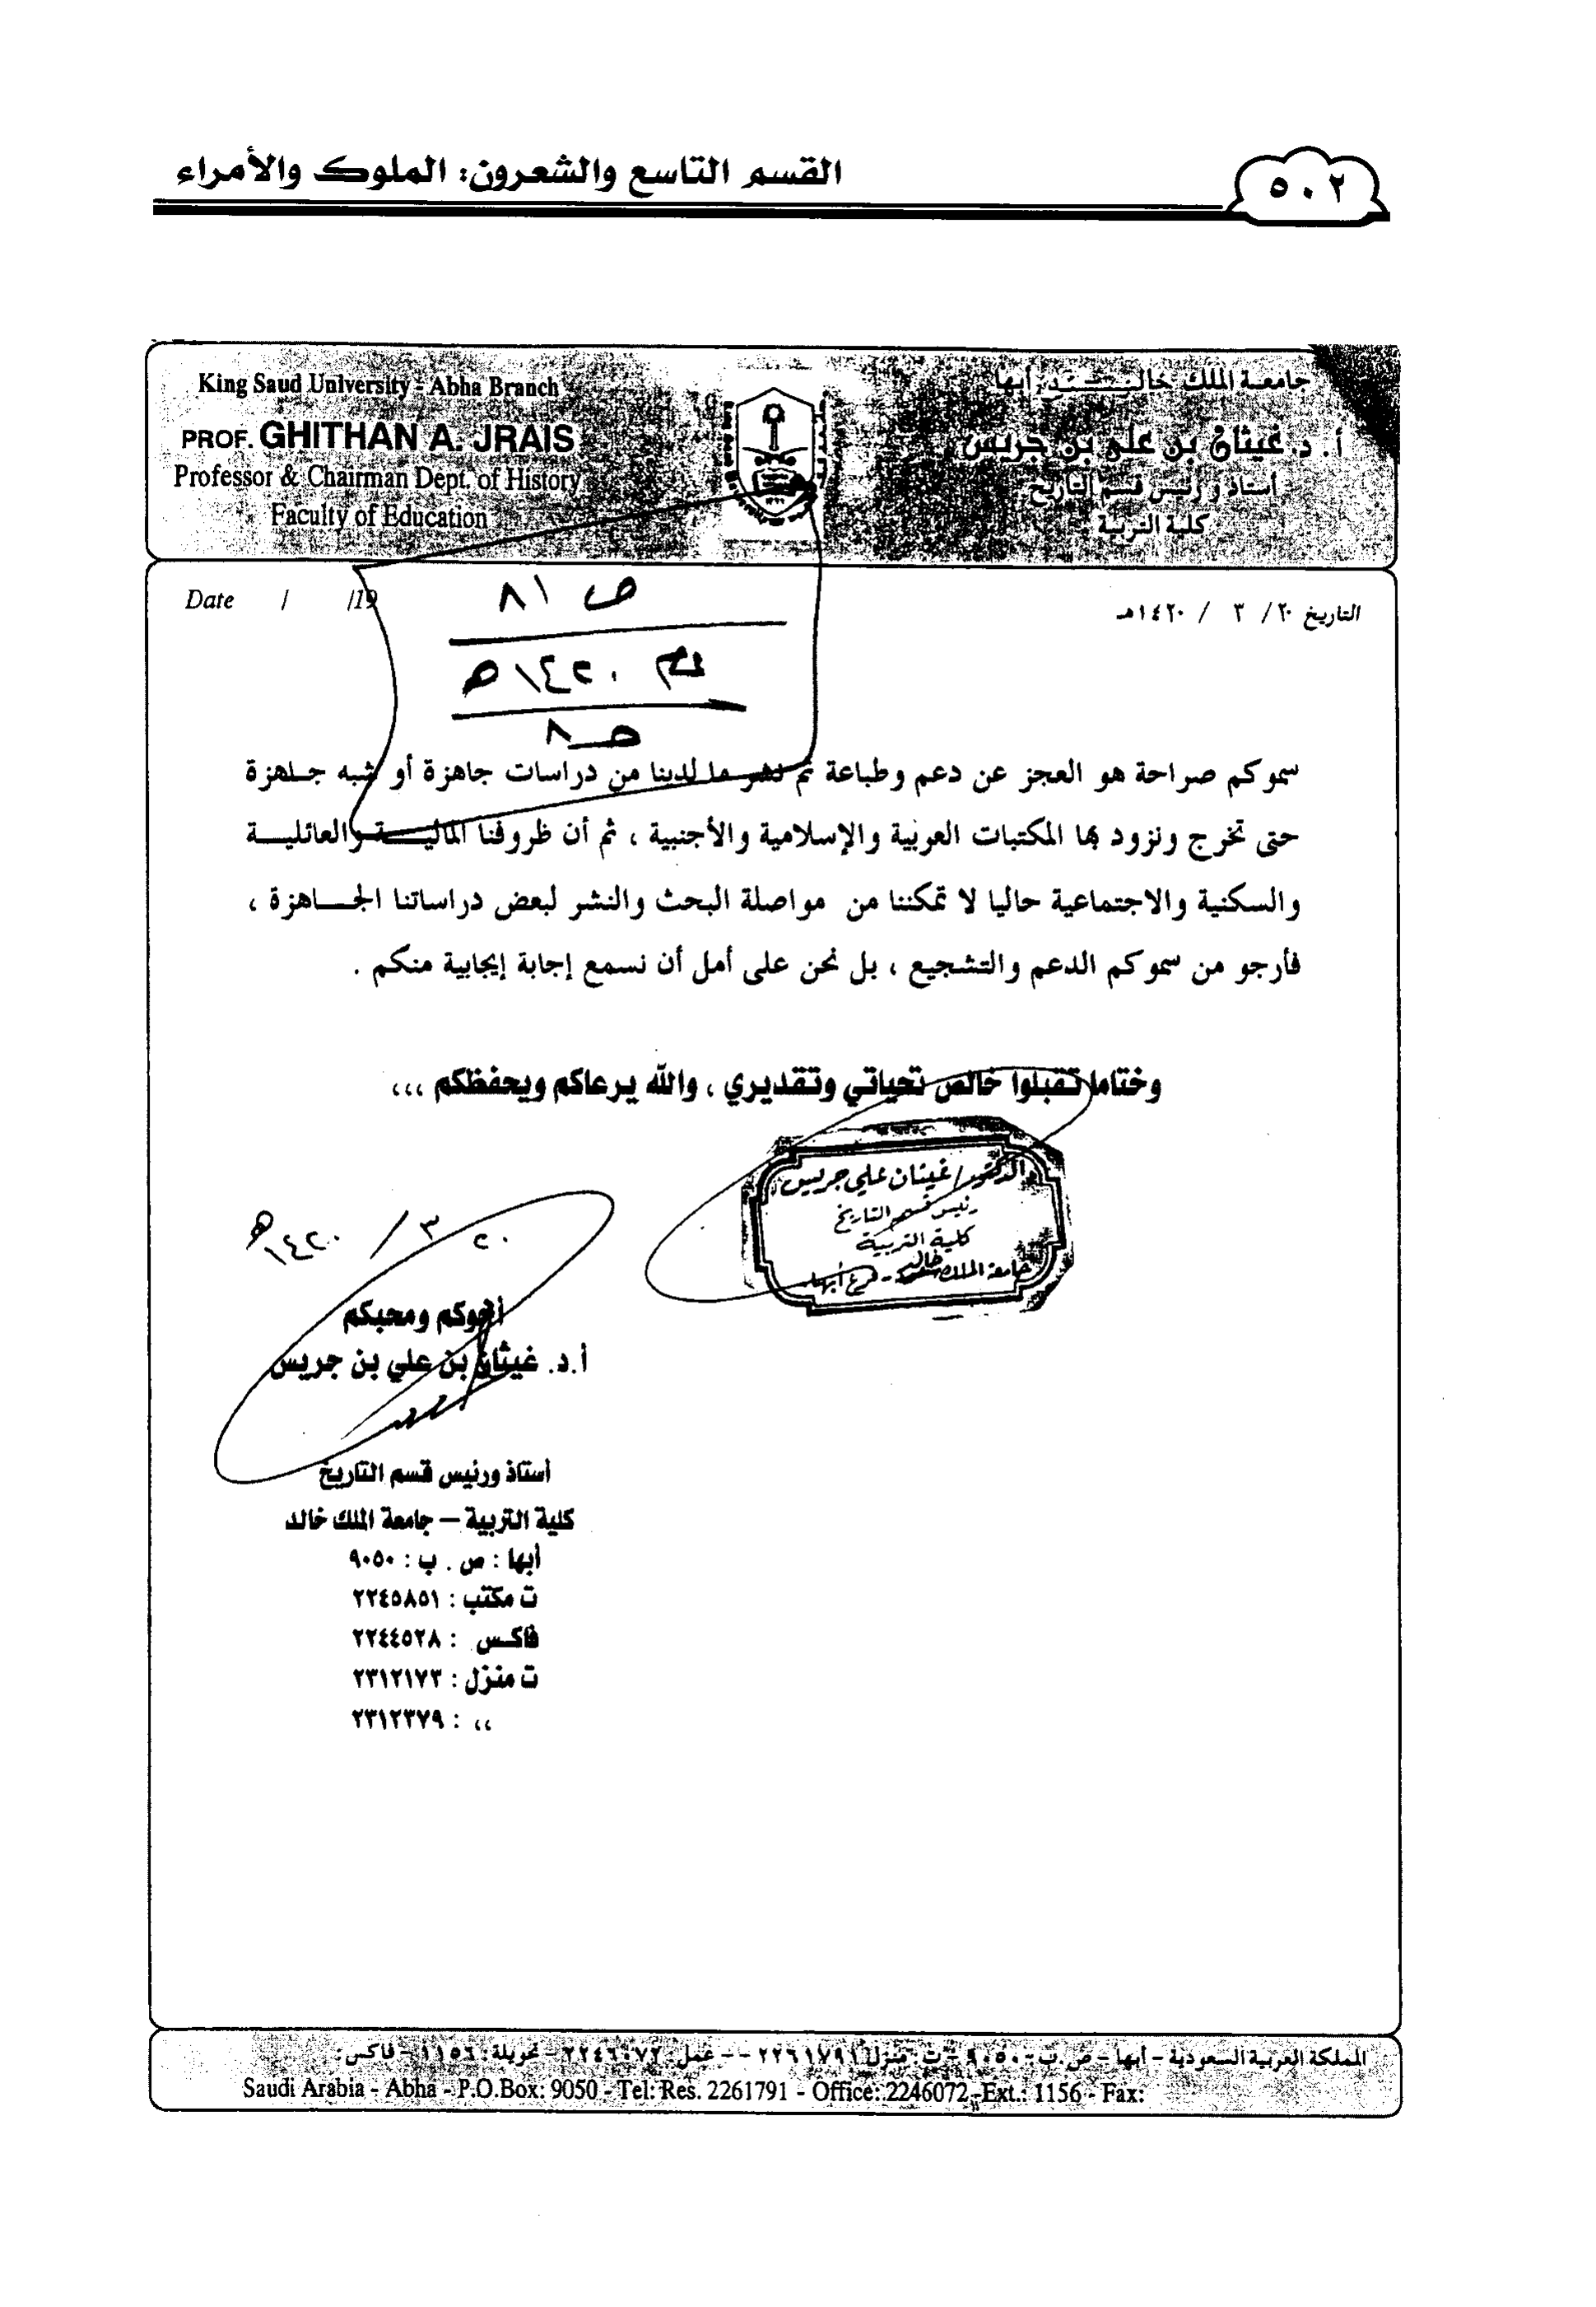 ٥٠٢
القسم التاسع والشعرون: الملوك والأمراء
King Saud University - Abha Branch
PROF. GHITHAN A. JRAIS
Professor & Chairman Dept. of History
Faculty of Education
جامعة الملك خالد أبها
أ. د. غيثان بن علي بن جريس
أستاذ و رئيس قسم التاريخ
كلية التربية
Date / /19
التاريخ ٢٠/ ٣ / ١٤٢٠هـ
ص ٨١
١٤٢٠ هـ
ص ٨
سموكم صراحة هو العجز عن دعم وطباعة ثم نشر ما لدينا من دراسات جاهزة أو شبه جاهزة
حتى تخرج ونزود بها المكتبات العربية والإسلامية والأجنبية ، ثم أن ظروفنا المالية والعائلية
والسكنية والاجتماعية حاليا لا تمكننا من مواصلة البحث والنشر لبعض دراساتنا الجاهزة ،
فأرجو من سموكم الدعم والتشجيع ، بل نحن على أمل أن نسمع إجابة إيجابية منكم .
وختاما تقبلوا خالص تحياتي وتقديري ، والله يرعاكم ويحفظكم ،،،
الدكتور/ غيثان علي جريس
رئيس قسم التاريخ
كلية التربية
جامعة الملك خالد - فرع أبها
٢٠ / ٣ / ١٤٢٠هـ
أخوكم ومحبكم
أ.د. غيثان بن علي بن جريس
أستاذ ورئيس قسم التاريخ
كلية التربية – جامعة الملك خالد
أبها : ص . ب : ٩٠٥٠
ت مكتب : ٢٢٤٥٨٥١
فاكس : ٢٢٤٤٥٢٨
ت منزل : ٢٣١٢١٧٣
،، : ٢٣١٢٣٧٩
المملكة العربية السعودية - أبها - ص.ب - ٩٠٥٠ - ت: منزل ٢٢٦١٧٩١ - - عمل: ٢٢٤٦٠٧٢ - تحويلة: ١١٥٦ - فاكس:
Saudi Arabia - Abha - P.O.Box: 9050 - Tel: Res. 2261791 - Office: 2246072 - Ext.: 1156 - Fax: